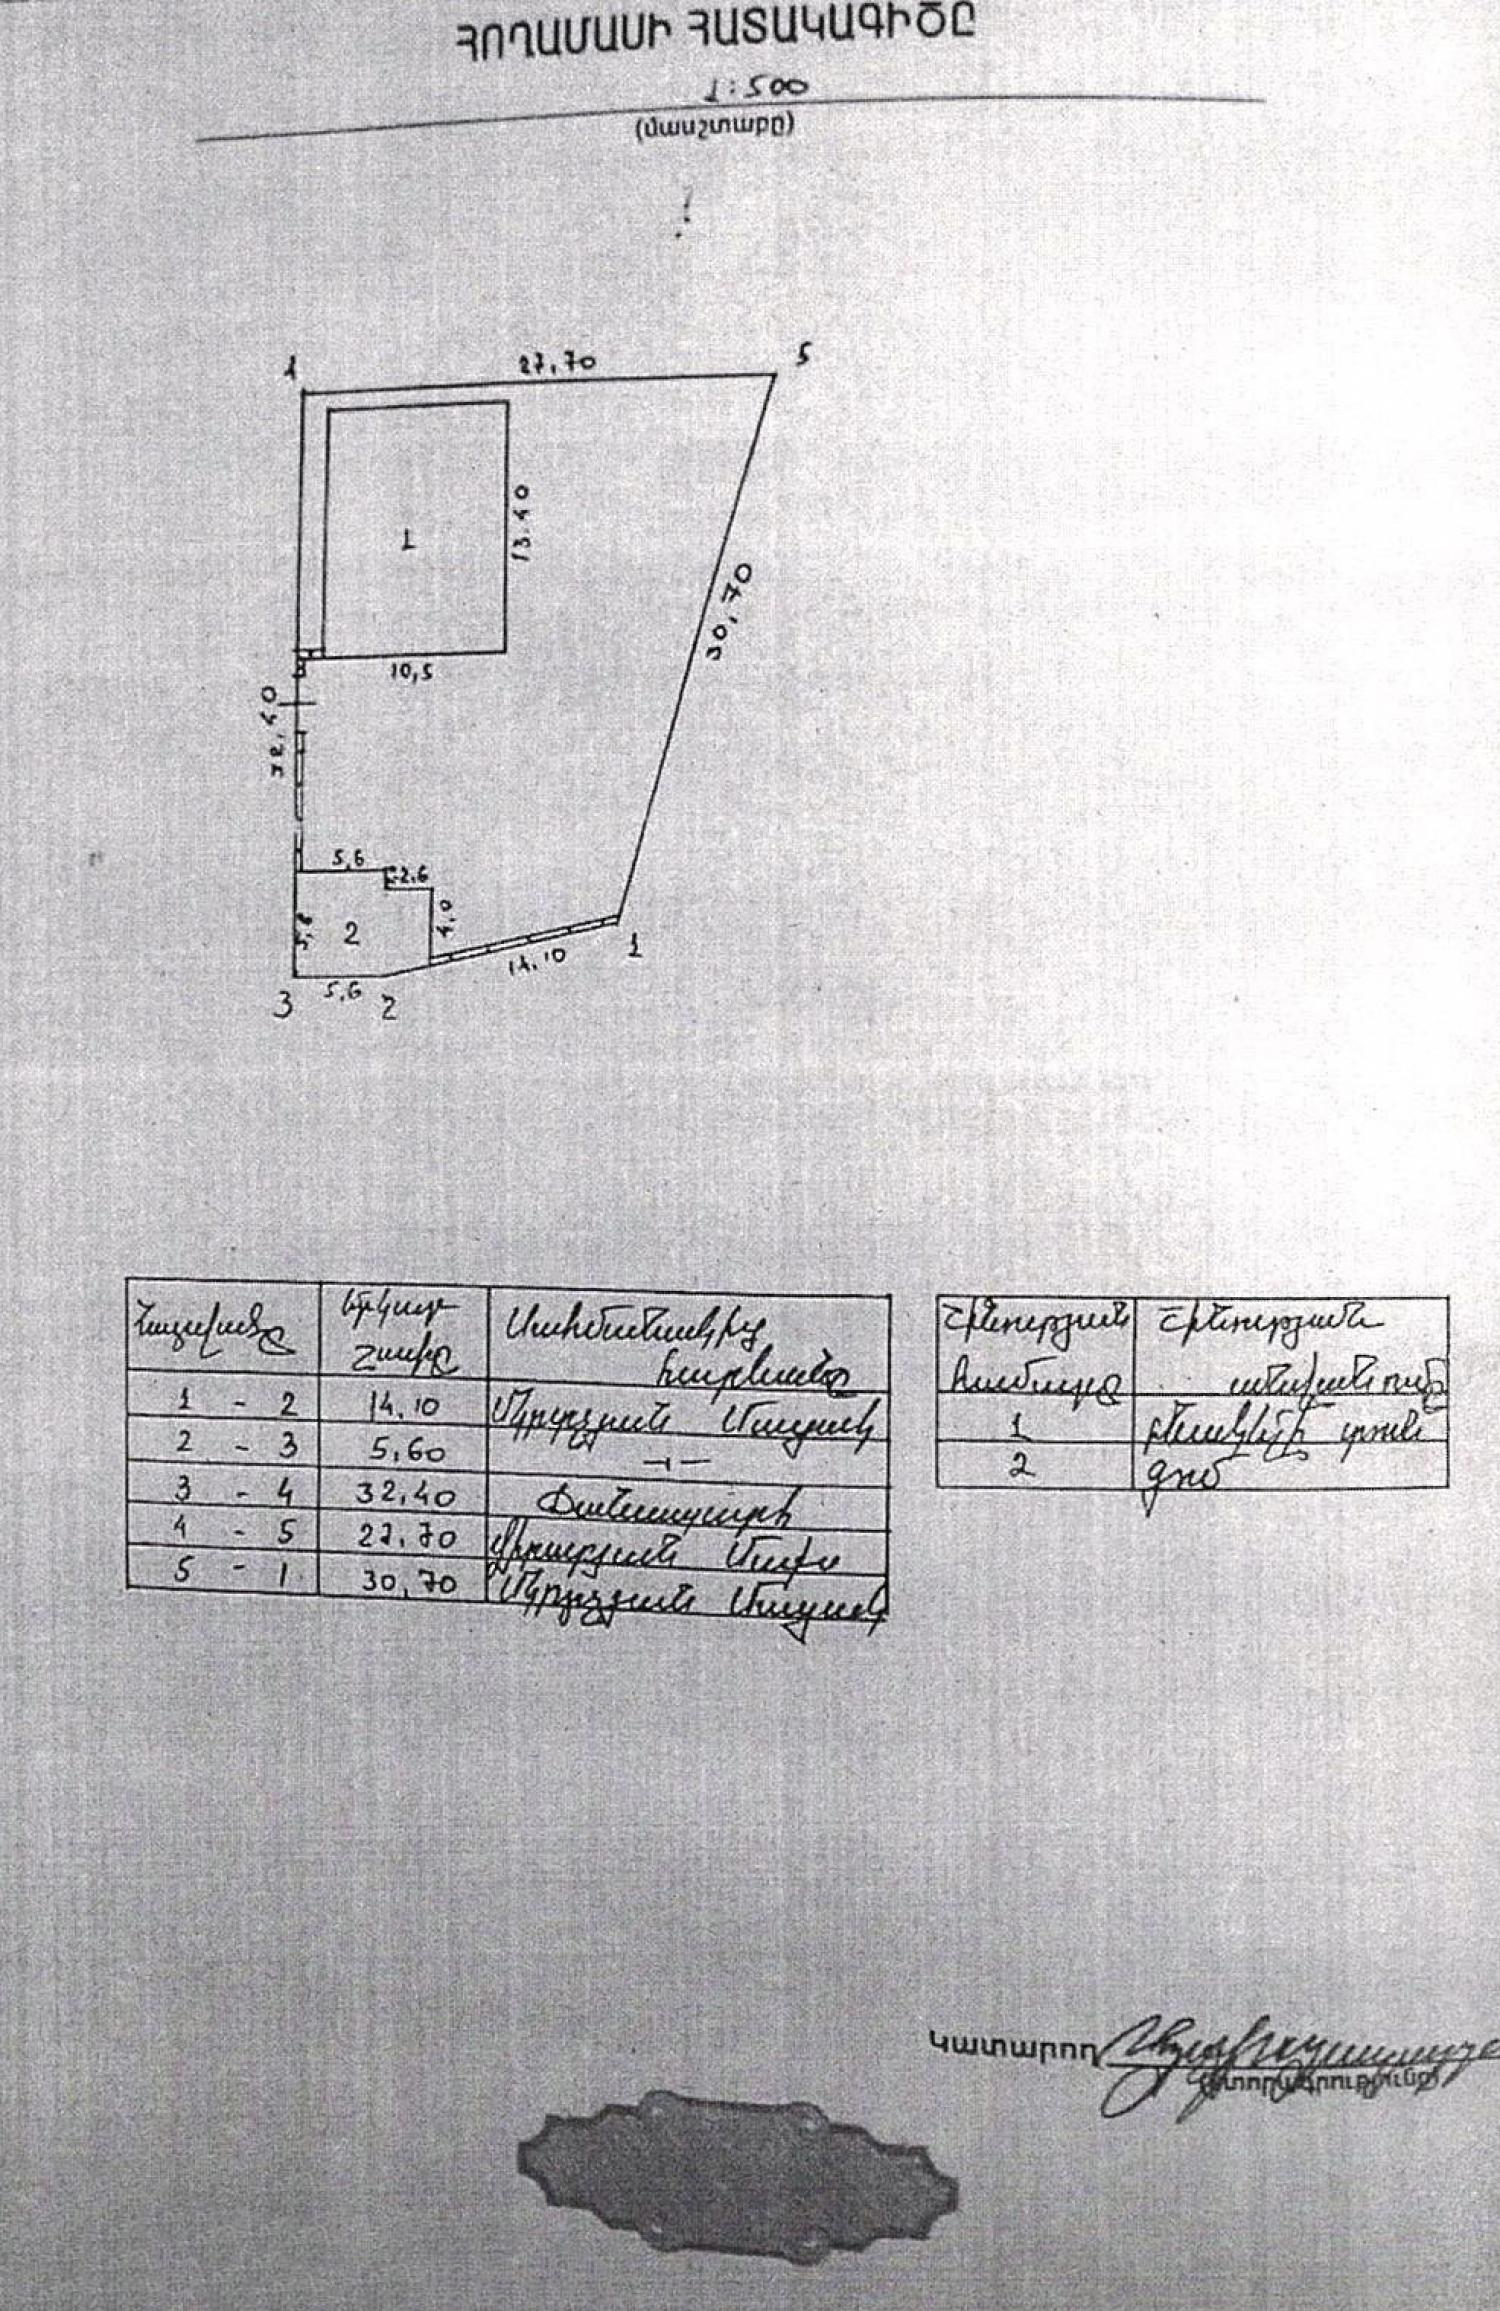 ՀՈՂԱՄԱՍԻ ՀԱՏԱԿԱԳԻԾԸ
1:500
(մասշտաբը)
1
27,70
5
1
13.40
10,5
32,40
30,70
5,6
2.6
5,8
2
4,0
14,10
1
3
5,6
2
Երկար
Սահմանակից
Շինության
Շինության
չափը
համարը
անվանումը
1 - 2
14,10
Մկրտչյան
1
բնակելի տուն
2 - 3
5,60
2
գոմ
3 - 4
32,40
Ճանապարհ
4 - 5
27,70
5 - 1
30,70
Մկրտչյան
Կատարող
(ստորագրությունը)